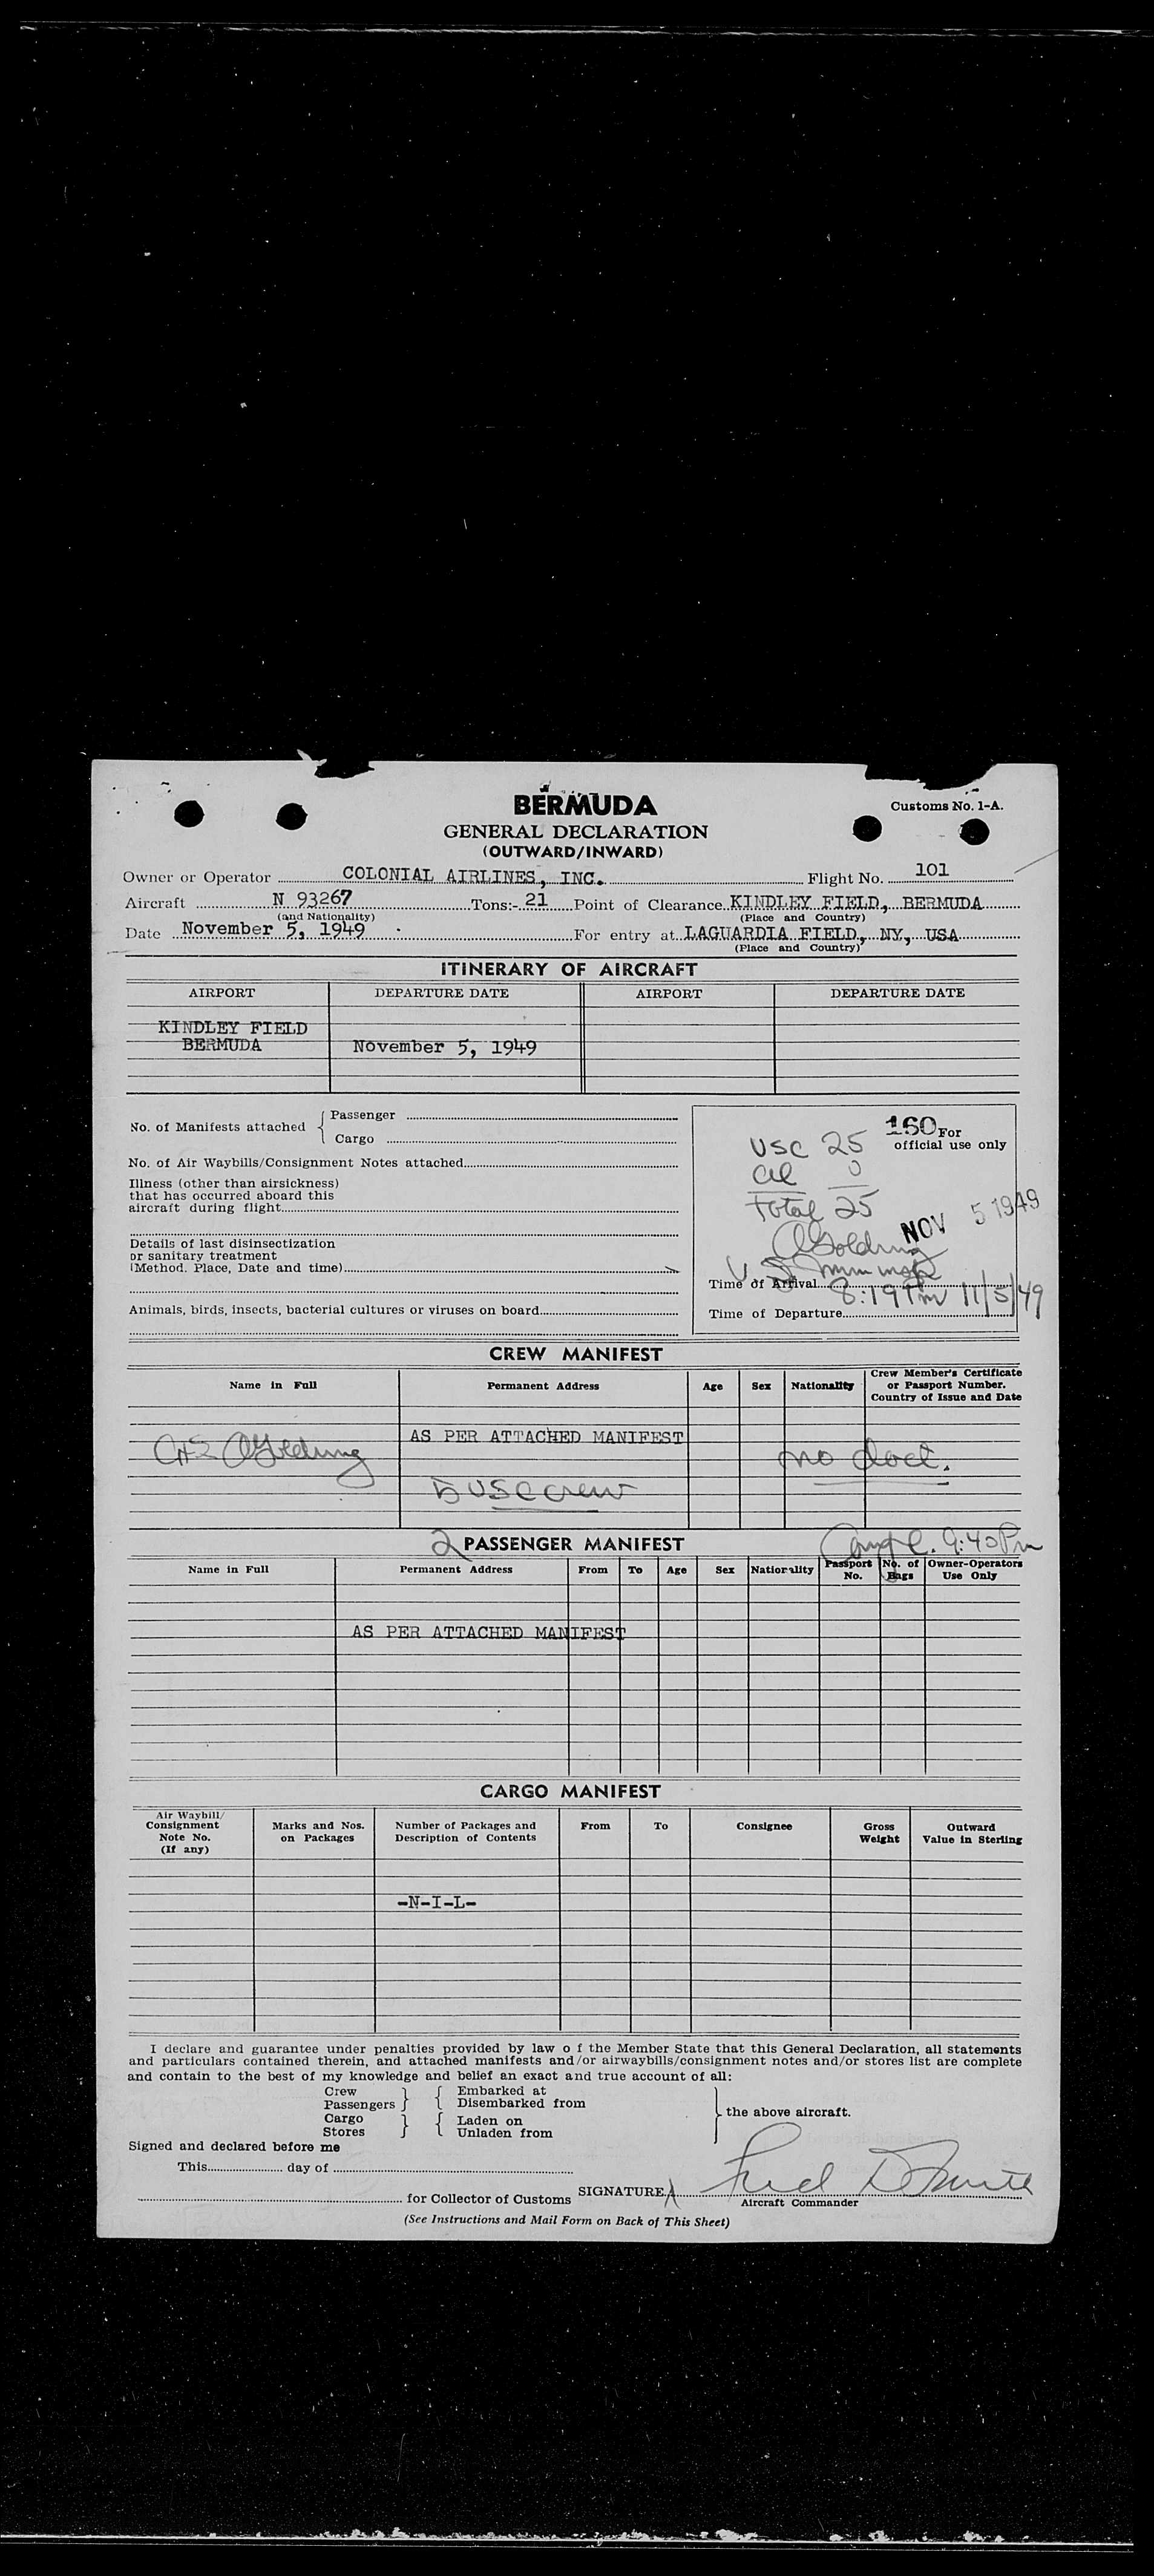 BERMUDA
Customs No. 1-A.
GENERAL DECLARATION
(OUTWARD/INWARD)
Owner or Operator COLONIAL AIRLINES, INC. Flight No. 101
Aircraft N 93267 Tons:- 21 Point of Clearance KINDLEY FIELD, BERMUDA
(and Nationality) (Place and Country)
Date November 5, 1949 For entry at LAGUARDIA FIELD, NY, USA
(Place and Country)
ITINERARY OF AIRCRAFT
AIRPORT DEPARTURE DATE AIRPORT DEPARTURE DATE
KINDLEY FIELD
BERMUDA November 5, 1949
No. of Manifests attached { Passenger
Cargo
No. of Air Waybills/Consignment Notes attached
Illness (other than airsickness)
that has occurred aboard this
aircraft during flight
Details of last disinsectization
or sanitary treatment
(Method. Place, Date and time)
Animals, birds, insects, bacterial cultures or viruses on board
160 For
official use only
USC 25
al 0
Total 25
NOV 5 1949
Golding
U S Imm insp
Time of Arrival 8:19 Pm 11/5/49
Time of Departure
CREW MANIFEST
Name in Full Permanent Address Age Sex Nationality Crew Member's Certificate
or Passport Number.
Country of Issue and Date
AS PER ATTACHED MANIFEST
Golding no doct.
5 USC crew
2 PASSENGER MANIFEST 9:40 Pm
Name in Full Permanent Address From To Age Sex Nationality Passport No. No. of Bags Owner-Operators Use Only
AS PER ATTACHED MANIFEST
CARGO MANIFEST
Air Waybill/
Consignment
Note No.
(If any) Marks and Nos.
on Packages Number of Packages and
Description of Contents From To Consignee Gross
Weight Outward
Value in Sterling
-N-I-L-
I declare and guarantee under penalties provided by law o f the Member State that this General Declaration, all statements
and particulars contained therein, and attached manifests and/or airwaybills/consignment notes and/or stores list are complete
and contain to the best of my knowledge and belief an exact and true account of all:
Crew } { Embarked at
Passengers } { Disembarked from
Cargo } { Laden on } the above aircraft.
Stores } { Unladen from
Signed and declared before me
This day of
SIGNATURE Fred D Smith
for Collector of Customs Aircraft Commander
(See Instructions and Mail Form on Back of This Sheet)